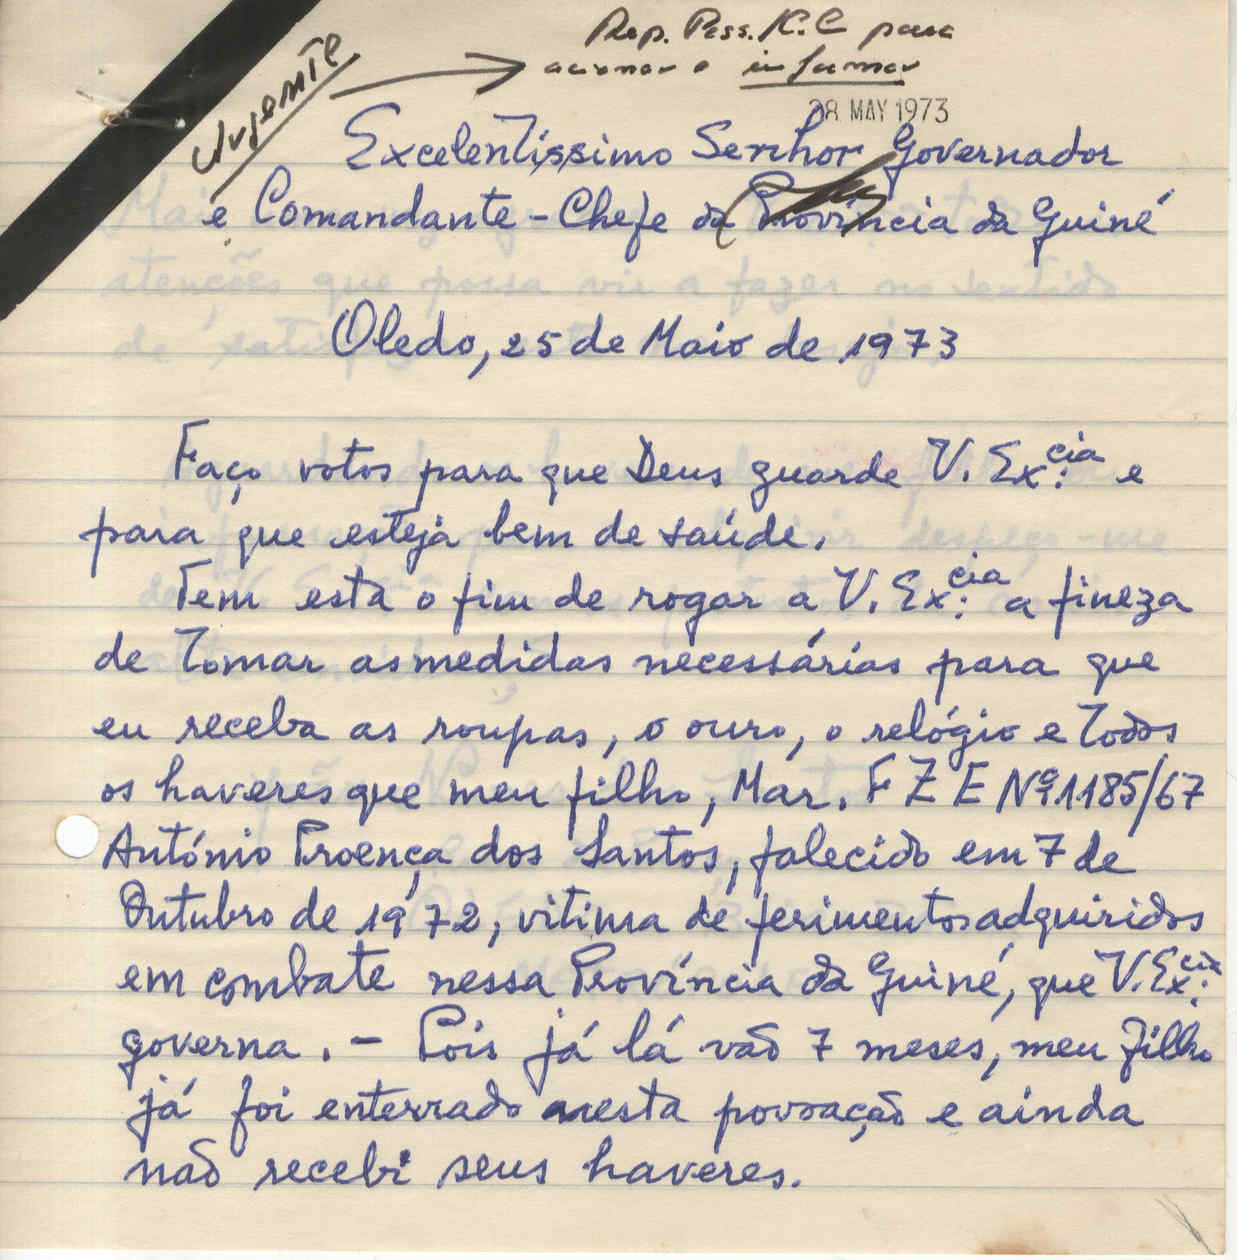 Urgente
Rep. Pess. K.C para
acionar e informar
28 MAY 1973
Excelentíssimo Senhor Governador
e Comandante-Chefe da Província da Guiné
Oledo, 25 de Maio de 1973
Faço votos para que Deus guarde V. Ex.cia e
para que esteja bem de saúde.
Tem esta o fim de rogar a V. Ex.cia a fineza
de tomar as medidas necessárias para que
eu receba as roupas, o ouro, o relógio e todos
os haveres que meu filho, Mar. F Z E Nº 1185/67
António Proença dos Santos, falecido em 7 de
Outubro de 1972, vitima de ferimentos adquiridos
em combate nessa Província da Guiné, que V. Ex.cia
governa. - Pois já lá vão 7 meses, meu filho
já foi enterrado nesta povoação e ainda
não recebi seus haveres.